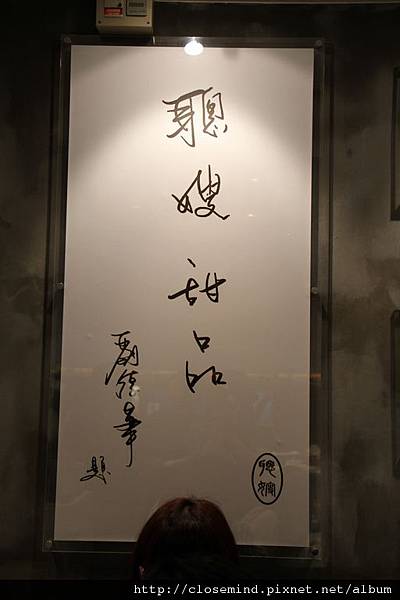 聰嫂甜品
劉德華
題
聰嫂
http://closemind.pixnet.net/album